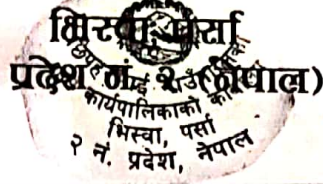 भिस्वा, पर्सा
प्रदेश नं. २ (नेपाल)
कार्यपालिकाको
भिस्वा, पर्सा
२ नं. प्रदेश, नेपाल